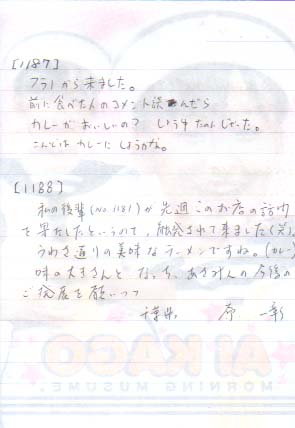 [1187]
フラノから来ました。
前に食べた人のコメント読んだら
カレーがおいしいの? しょうゆたのんじゃった。
こんどはカレーにしようかな。
[1188]
私の後輩(No.1181)が先週このお店の訪問
を果たしたというので、触発されて来ました(笑)。
うわさ通りの美味なラーメンですね。(カレー)
味の大きさんと なっち、あさみんの今後の
ご発展を願いつつ
千葉県 原 一彰
AI KAGO
MORNING MUSUME.